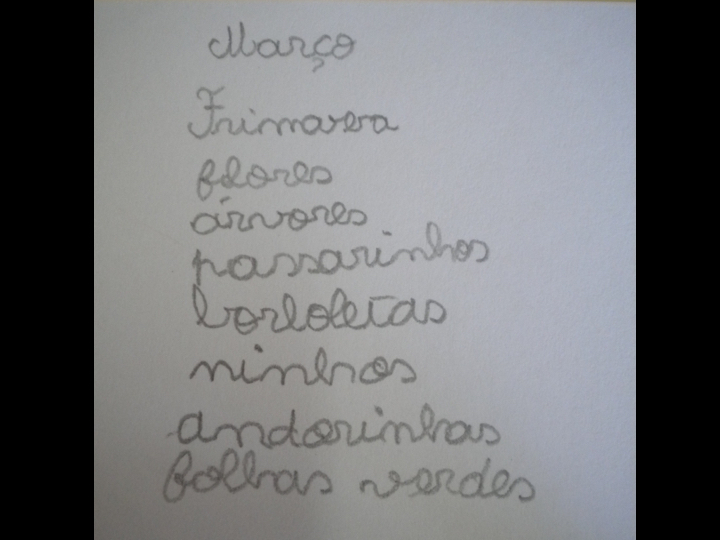 Março
Primavera
flores
árvores
passarinhos
borboletas
ninhos
andorinhas
folhas verdes